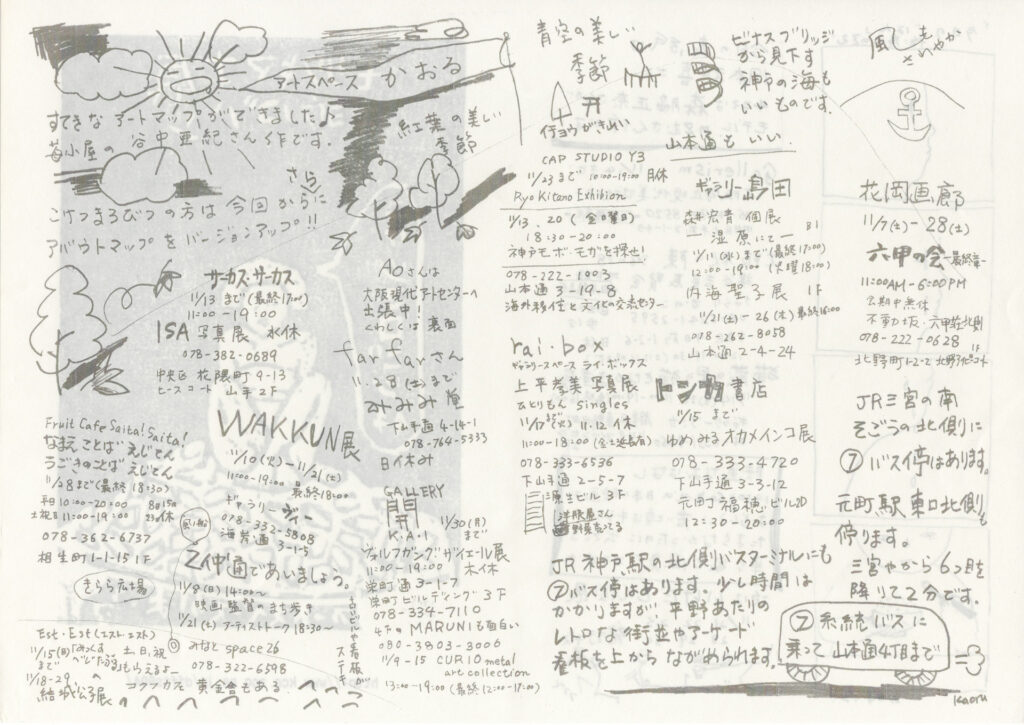 アートスペース かおる
すてきな アートマップが できました♪
苺小屋の 谷中亜紀さん作です。
紅葉の美しい
季節
こけつまろびつの方は 今回から さらに
アバウトマップを バージョンアップ!!
サーカス・サーカス
11/13 まで (最終17:00)
11:00-19:00
ISA 写真展 水休
078-382-0689
中央区 花隈町 9-13
ピースコート 山手 2F
AOさんは
大阪現代アートセンターへ
出張中!
くわしくは 裏面
farfarさん
11.28(土)まで
下山手通 4-14-1
078-764-5333
日休み
Fruit Cafe Saita! Saita!
なまえ ことば えじてん
うごきのことば えじてん
11/28まで (最終18:30)
平日 10:00-20:00
土祝日 11:00-19:00
078-362-6737
相生町 1-1-15 1F
きらら広場
WAKKUN展
11/10(火)-11/21(土)
11:00-19:00
最終18:00
ギャラリー ヴィー
078-332-5808
海岸通 3-1-5
GALLERY
開
K.A.I
11/30(月)
まで
ヴォルフガング ザイエール展
11:00-19:00 木休
栄町通 3-1-7
栄町ビルディング 3F
078-334-7110
4Fの MARUNIも面白い
080-3803-3006
11/9-15 CURIO metal
art collection
13:00-19:00 (最終12:00-17:00)
乙仲通であいましょう。
11/8(日) 14:00~
映画監督のまち歩き
11/21(土) アーティストトーク 18:30~
みなと space26
078-322-6598
コウフカフェ 黄金舎もある
Est・Est (エスト・エスト)
11/15(日)
まで
土日、祝
もらえるよー
11/18-29
結城公子展
青空の美しい
季節
イチョウがきれい
ビナスブリッジ
から見下す
神戸の海も
いいものです。
山本通も いい.
CAP STUDIO Y3
11/23まで 10:00-19:00 月休
Ryo Kitano Exhibition
11/13. 20 (金曜日)
18:30-20:00
神戸モボ・モガを探せ!
078-222-1003
山本通 3-19-8
海外移住と文化の交流センター
ギャラリー島田
森井宏青 個展
ー湿原にてー B1
11/11(水)まで (最終17:00)
12:00-19:00 (火曜18:00)
内海聖子展 1F
11/21(土)-26(木) 最終16:00
078-262-8058
山本通 2-4-24
rai・box
ギャラリースペース ライ・ボックス
上平孝美写真展
ひとりもん singles
11/17(火)まで 11.12 休
11:00-18:00 (金土延長有)
078-333-6536
下山手通 2-5-7
源生ビル 3F
洋服屋さん
トンカ書店
11/15 まで
ゆめみる オカメインコ展
078-333-4720
下山手通 3-3-12
元町福穂ビル2D
12:30-20:00
風も
さわやか
花岡画廊
11/7(土)-28(土)
六甲の会ー最終章ー
11:00AM-6:00PM
会期中無休
不動坂・六甲荘北側
078-222-0628
北野町 1-2-2 北野アパコート 1F
JR三宮の南
そごうの北側に
⑦ バス停はあります。
元町駅東口北側も
停ります。
三宮やから 6つ目を
降りて 2分です。
JR 神戸駅の北側バスターミナルにも
⑦バス停はあります。少し時間は
かかりますが 平野あたりの
レトロな 街並やアーケード
看板を上から ながめられます。
⑦ 系統バスに
乗って 山本通4丁目まで
kaoru